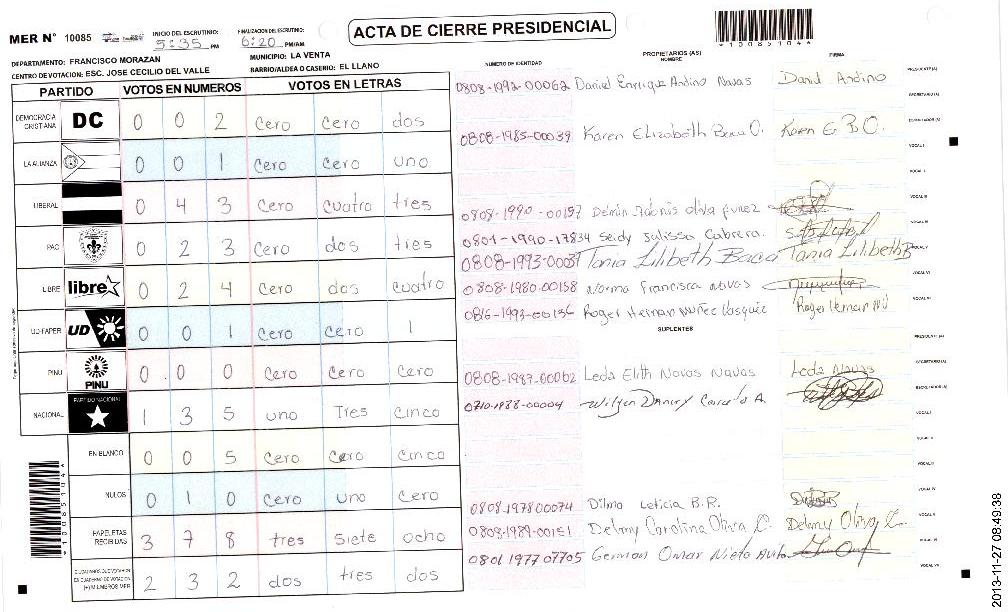 ACTA DE CIERRE PRESIDENCIAL
*1008510 4*
MER N° 10085
INICIO DEL ESCRUTINIO: 5:35 PM
FINALIZACION DEL ESCRUTINIO: 6:20 PM/AM
DEPARTAMENTO: FRANCISCO MORAZAN
MUNICIPIO: LA VENTA
CENTRO DE VOTACION: ESC. JOSE CECILIO DEL VALLE
BARRIO/ALDEA O CASERIO: EL LLANO
PARTIDO VOTOS EN NUMEROS VOTOS EN LETRAS
DEMOCRACIA CRISTIANA DC 0 0 2 cero cero dos
LA ALIANZA 0 0 1 cero cero uno
LIBERAL 0 4 3 cero cuatro tres
PAC 0 2 3 cero dos tres
LIBRE libre 0 2 4 cero dos cuatro
UD-FAPER UD 0 0 1 cero cero 1
PINU PINU 0 0 0 cero cero cero
NACIONAL PARTIDO NACIONAL 1 3 5 uno Tres cinco
EN BLANCO 0 0 5 cero cero cinco
NULOS 0 1 0 cero uno cero
PAPELETAS RECIBIDAS 3 7 8 tres siete ocho
CIUDADANOS QUE VOTARON EN CUADERNO DE VOTACION (+) MIEMBROS MER 2 3 2 dos tres dos
NUMERO DE IDENTIDAD PROPIETARIOS (AS) NOMBRE FIRMA
0808-1992-00062 Daniel Enrique Andino Navas Daniel Andino
PRESIDENTE(A)
SECRETARIO(A)
0808-1985-00039 Karen Elizabeth Baca O. Karen E B O.
ESCRUTADOR(A)
VOCAL I
VOCAL II
0808-1990-00157
VOCAL III
0801-1990-17834 Seidy Julissa Cabrera.
VOCAL IV
0808-1993-0003 Tania Lilibeth Baca Tania Lilibeth B
VOCAL V
0808-1980-00158 Norma Francisca Navas
VOCAL VI
0816-1993-00156 Roger Hernan Nuñez Vasquez Roger Hernan
VOCAL VII
SUPLENTES
PRESIDENTE(A)
SECRETARIO(A)
0808-1987-00062 Leda Elith Navas Navas Leda Navas
ESCRUTADOR(A)
0710-1988-00004
VOCAL I
VOCAL II
VOCAL III
VOCAL IV
0808-1978 00074 Dilma Leticia B.R.
VOCAL V
0808-1989-00151 Delmy Carolina Oliva C. Delmy Oliva C.
VOCAL VI
0801 1977 07705 German Omar Nieto
VOCAL VII
2013-11-27 08:49:38